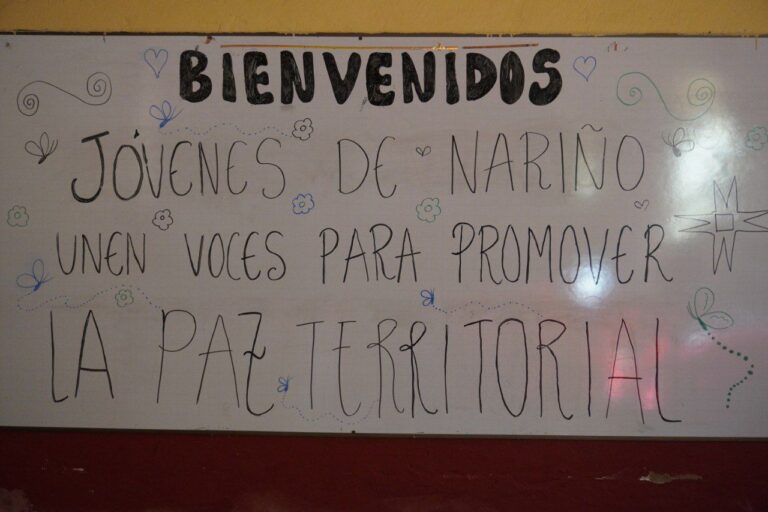 BIENVENIDOS
JÓVENES DE NARIÑO
UNEN VOCES PARA PROMOVER
LA PAZ TERRITORIAL